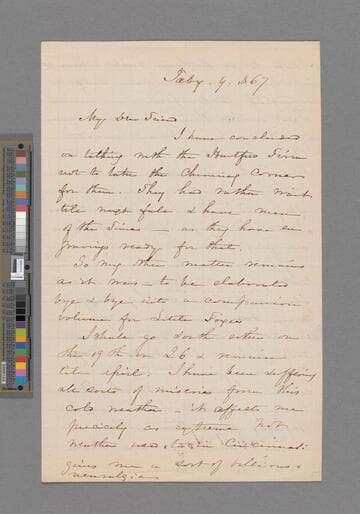 Feby. 9. 1867
My Dear Friend
I have concluded
on talking with the Hartford Firm
not to take the Chimney Corner
for them. They had rather wait
till next fall & have men
of the Times — as they have en
gravings ready for that.
So my other matter remains
as it was — to be elaborated
bye & bye into a companion
volume for Little Foxes
I shall go South either on
the 19th or 26 & remain
till April: I have been suffering
all sorts of miseries from this
cold weather — It affects me
precisely as extreme hot
weather used to in Cincinnati
gives me a sort of billious &
neuralgia